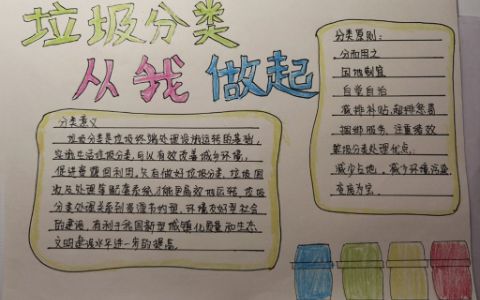 垃圾分类
从我做起
分类意义
垃圾分类是垃圾终端处理设施运转的基础,
实施生活垃圾分类,可以有效改善城乡环境,
促进资源回收利用。只有做好垃圾分类,垃圾回
收及处理等配套系统才能更高效地运转。垃圾
分类处理关系到资源节约型、环境友好型社会
的建设,有利于我国新型城镇化质量和生态
文明建设水平进一步的提高。
分类原则:
分而用之
因地制宜
自觉自治
减排补贴,超排惩罚
捆绑服务,注重绩效
垃圾分类处理优点:
减少占地、减少环境污染
变废为宝